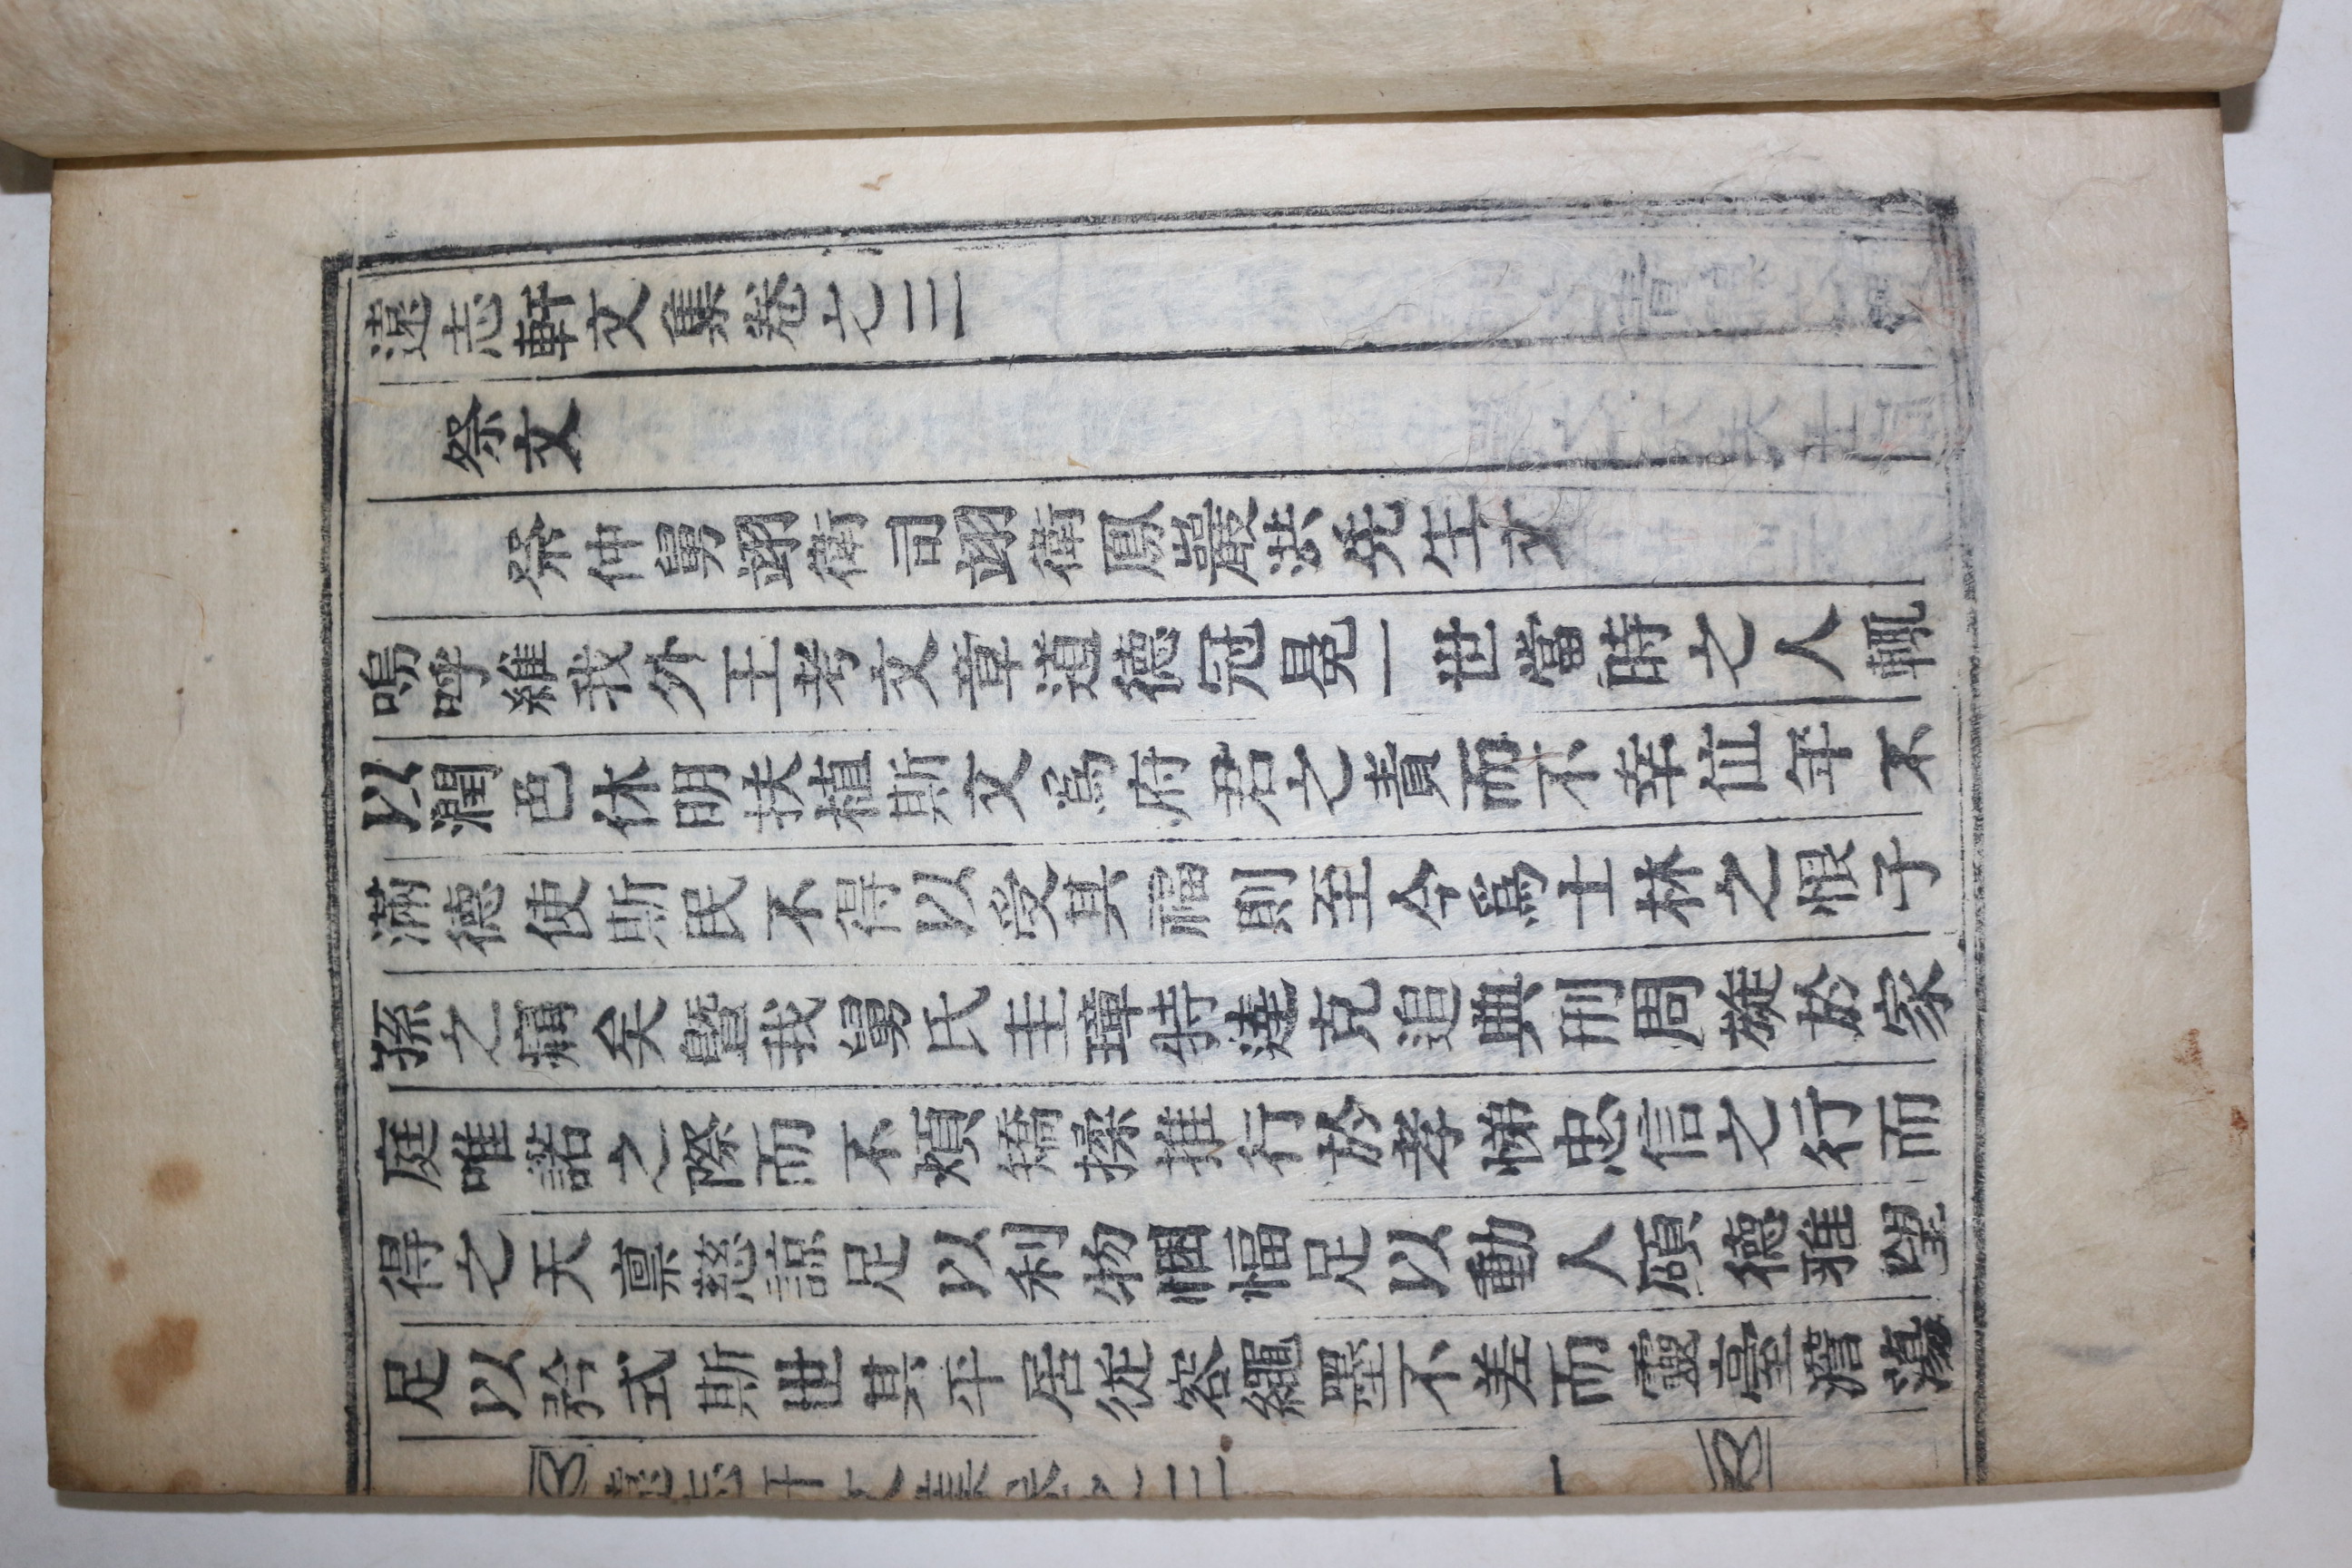 遠志軒文集卷之三
祭文
祭仲舅翊衛司翊衛鳳巖洪先生文
嗚呼維我外王考文章道德冠冕一世當時之人輒
以潤色休明扶植斯文爲府君之責而不幸位年不
滿德使斯民不得以受其福則至今爲士林之恨子
孫之痛矣曁我舅氏圭璋特達克追典刑周旋於家
庭唯諾之際而不煩矯揉推行於孝悌忠信之行而
得之天稟慈諒足以利物悃愊足以動人碩德雅望
足以矜式斯世其平居從容繩墨不差而靈臺澹蕩
遠志軒文集卷之三 一